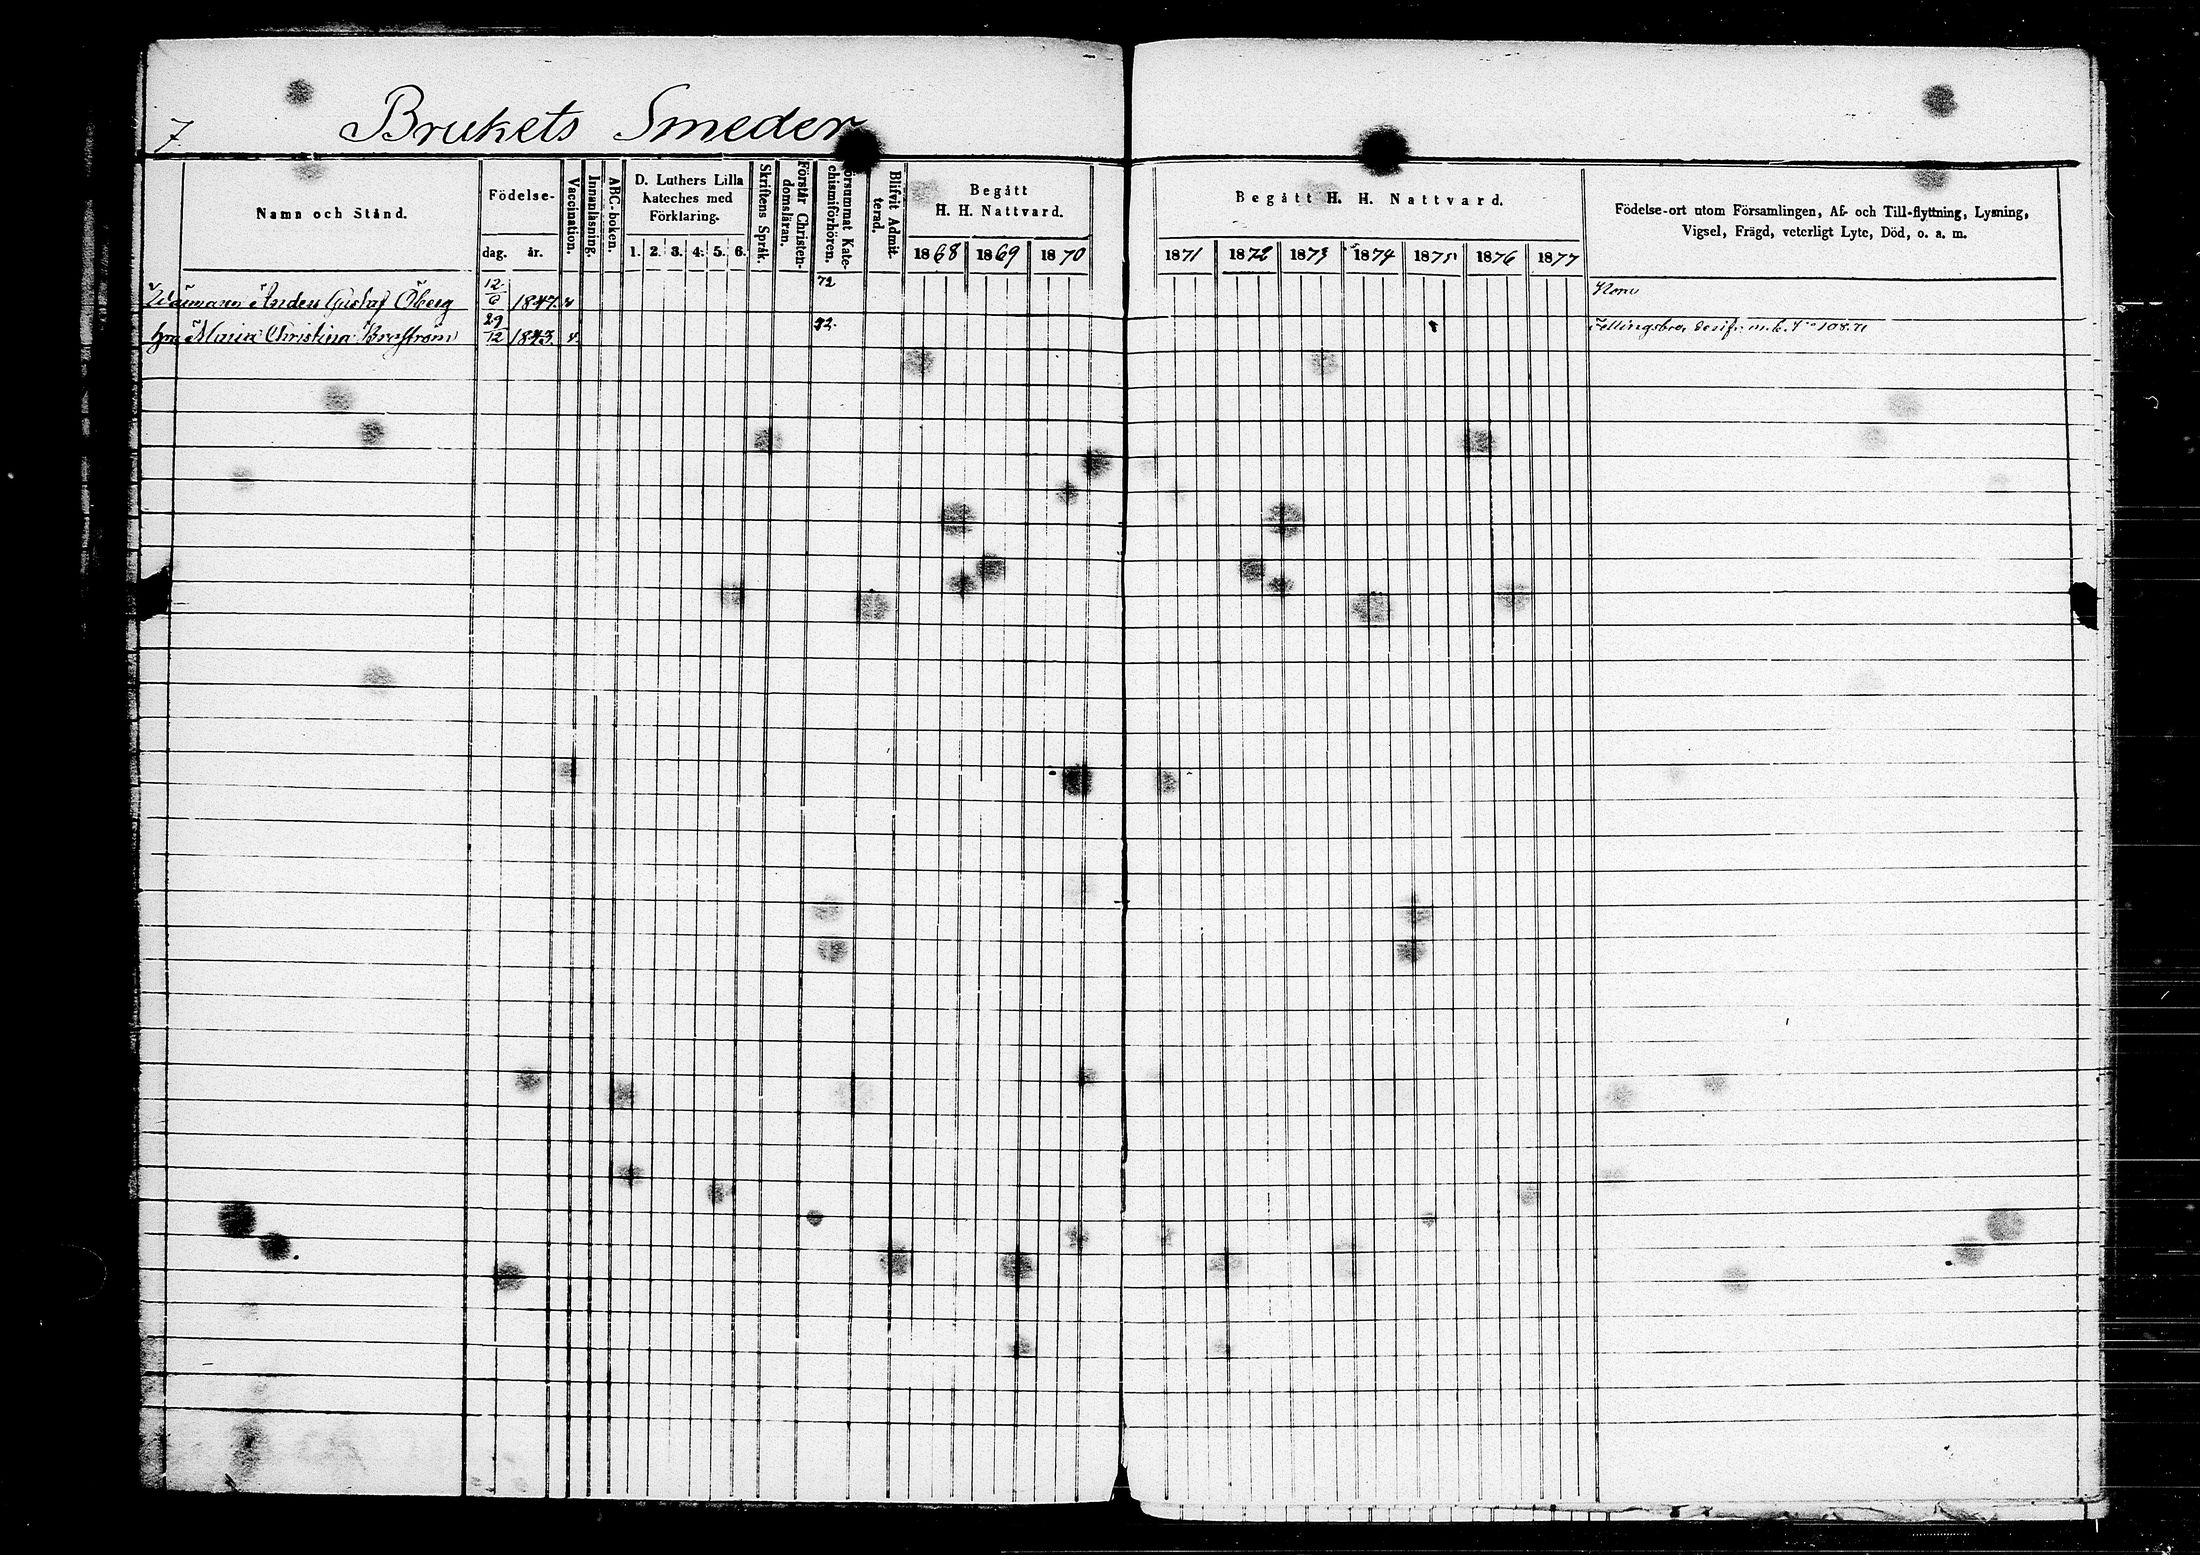 7 Brukets Smeder
Namn och Stånd.
Födelse-
dag. år.
Vaccination.
Innanläsning.
ABC-boken.
D. Luthers Lilla
Kateches med
Förklaring.
1. 2. 3. 4. 5. 6.
Skriftens Språk.
Förstår Christen-
domsläran.
Försummat Kate-
chismiförhören.
Blifvit Admit-
terad.
Begått
H. H. Nattvard.
1868 1869 1870
Begått H. H. Nattvard.
1871 1872 1873 1874 1875 1876 1877
Födelse-ort utom Församlingen, Af- och Till-flyttning, Lysning,
Vigsel, Frägd, veterligt Lyte, Död, o. a. m.
Anders Gustaf Öberg 12/6 1847. v 72
Maria Christina 29/12 1843. v. 72. Fellingsbro, 108.71